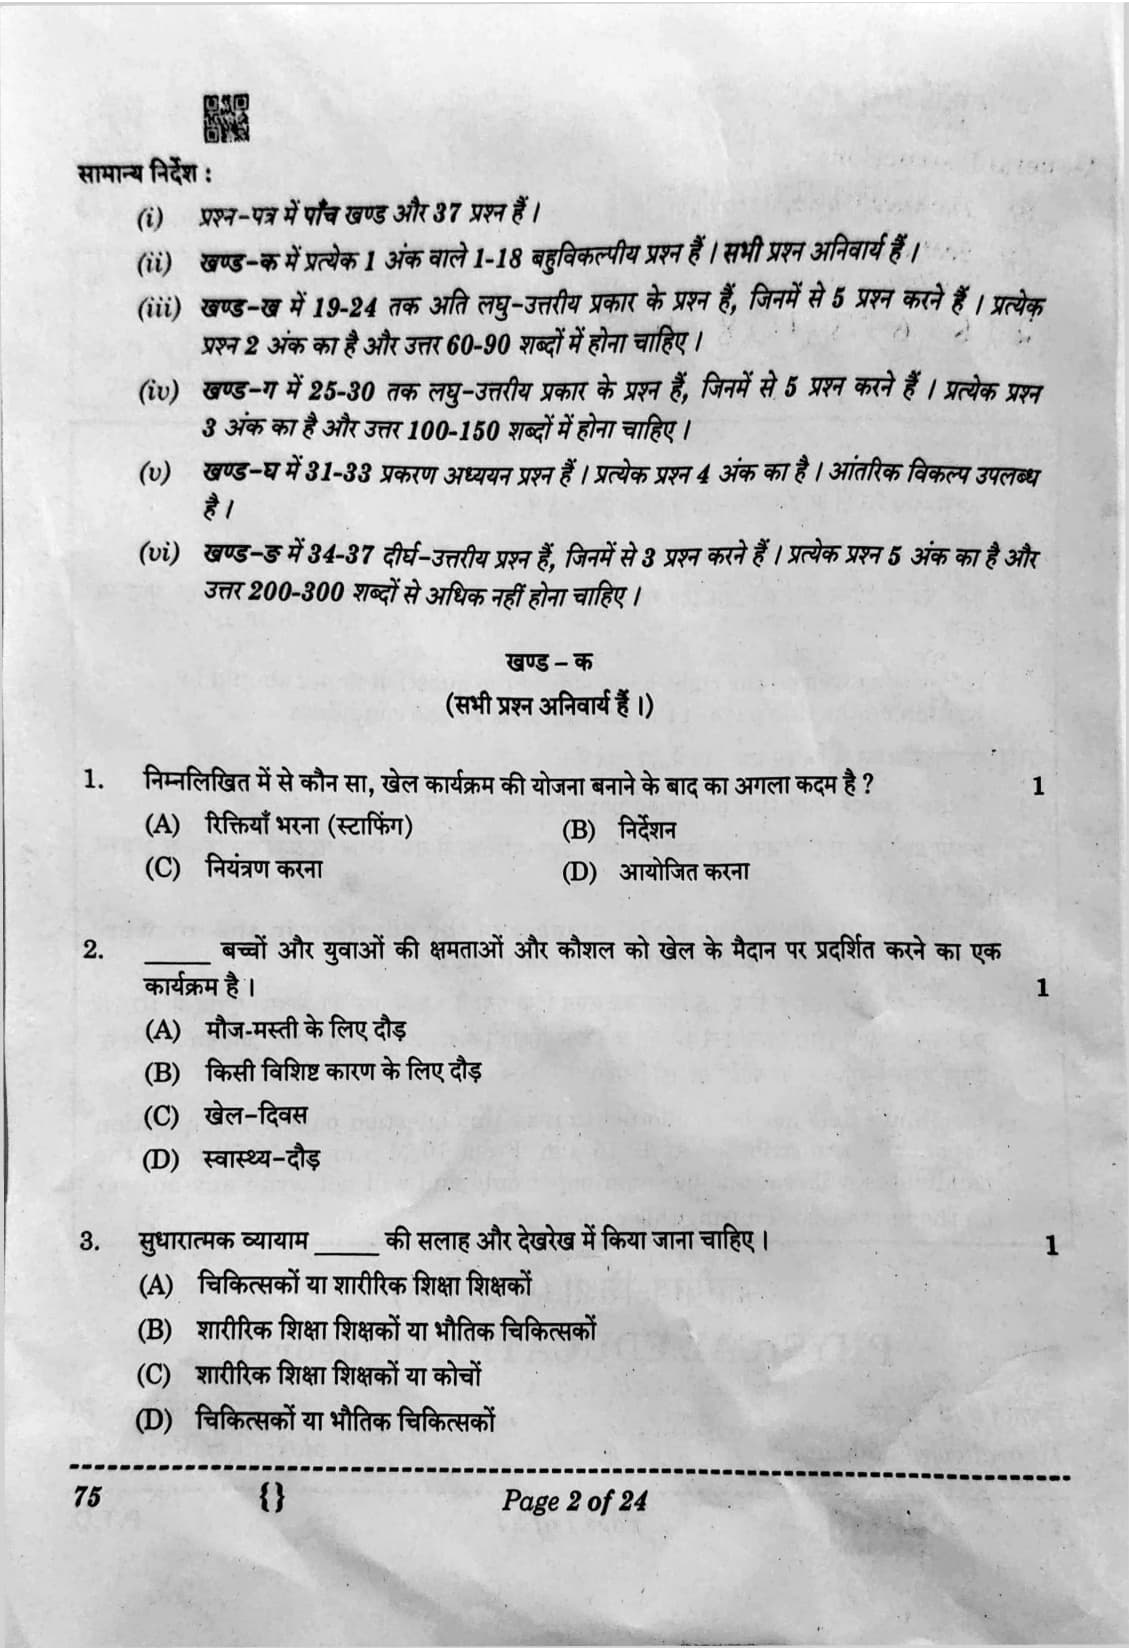 सामान्य निर्देश :
(i) प्रश्न-पत्र में पाँच खण्ड और 37 प्रश्न हैं ।
(ii) खण्ड-क में प्रत्येक 1 अंक वाले 1-18 बहुविकल्पीय प्रश्न हैं । सभी प्रश्न अनिवार्य हैं ।
(iii) खण्ड-ख में 19-24 तक अति लघु-उत्तरीय प्रकार के प्रश्न हैं, जिनमें से 5 प्रश्न करने हैं । प्रत्येक
प्रश्न 2 अंक का है और उत्तर 60-90 शब्दों में होना चाहिए ।
(iv) खण्ड-ग में 25-30 तक लघु-उत्तरीय प्रकार के प्रश्न हैं, जिनमें से 5 प्रश्न करने हैं । प्रत्येक प्रश्न
3 अंक का है और उत्तर 100-150 शब्दों में होना चाहिए ।
(v) खण्ड-घ में 31-33 प्रकरण अध्ययन प्रश्न हैं । प्रत्येक प्रश्न 4 अंक का है । आंतरिक विकल्प उपलब्ध
है ।
(vi) खण्ड-ङ में 34-37 दीर्घ-उत्तरीय प्रश्न हैं, जिनमें से 3 प्रश्न करने हैं । प्रत्येक प्रश्न 5 अंक का है और
उत्तर 200-300 शब्दों से अधिक नहीं होना चाहिए ।
खण्ड – क
(सभी प्रश्न अनिवार्य हैं ।)
1. निम्नलिखित में से कौन सा, खेल कार्यक्रम की योजना बनाने के बाद का अगला कदम है ? 1
(A) रिक्तियाँ भरना (स्टाफिंग) (B) निर्देशन
(C) नियंत्रण करना (D) आयोजित करना
2. _____ बच्चों और युवाओं की क्षमताओं और कौशल को खेल के मैदान पर प्रदर्शित करने का एक
कार्यक्रम है । 1
(A) मौज-मस्ती के लिए दौड़
(B) किसी विशिष्ट कारण के लिए दौड़
(C) खेल-दिवस
(D) स्वास्थ्य-दौड़
3. सुधारात्मक व्यायाम _____ की सलाह और देखरेख में किया जाना चाहिए । 1
(A) चिकित्सकों या शारीरिक शिक्षा शिक्षकों
(B) शारीरिक शिक्षा शिक्षकों या भौतिक चिकित्सकों
(C) शारीरिक शिक्षा शिक्षकों या कोचों
(D) चिकित्सकों या भौतिक चिकित्सकों
75 {} Page 2 of 24